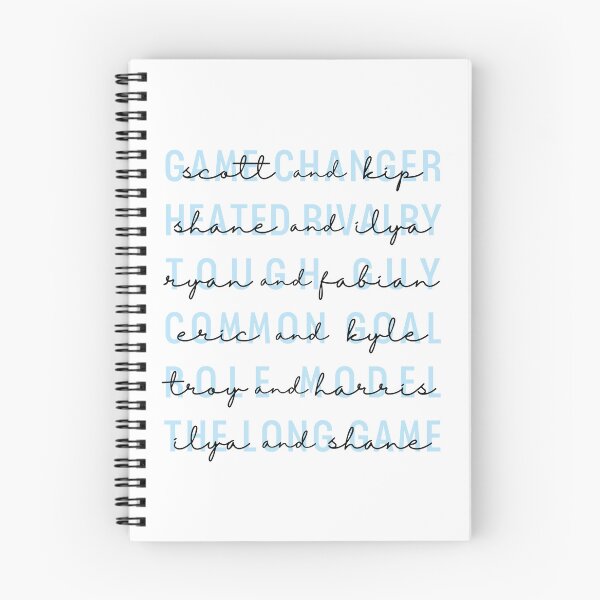 GAME CHANGER
scott and kip
HEATED RIVALRY
shane and ilya
TOUGH GUY
ryan and fabian
COMMON GOAL
eric and kyle
ROLE MODEL
troy and harris
THE LONG GAME
ilya and shane